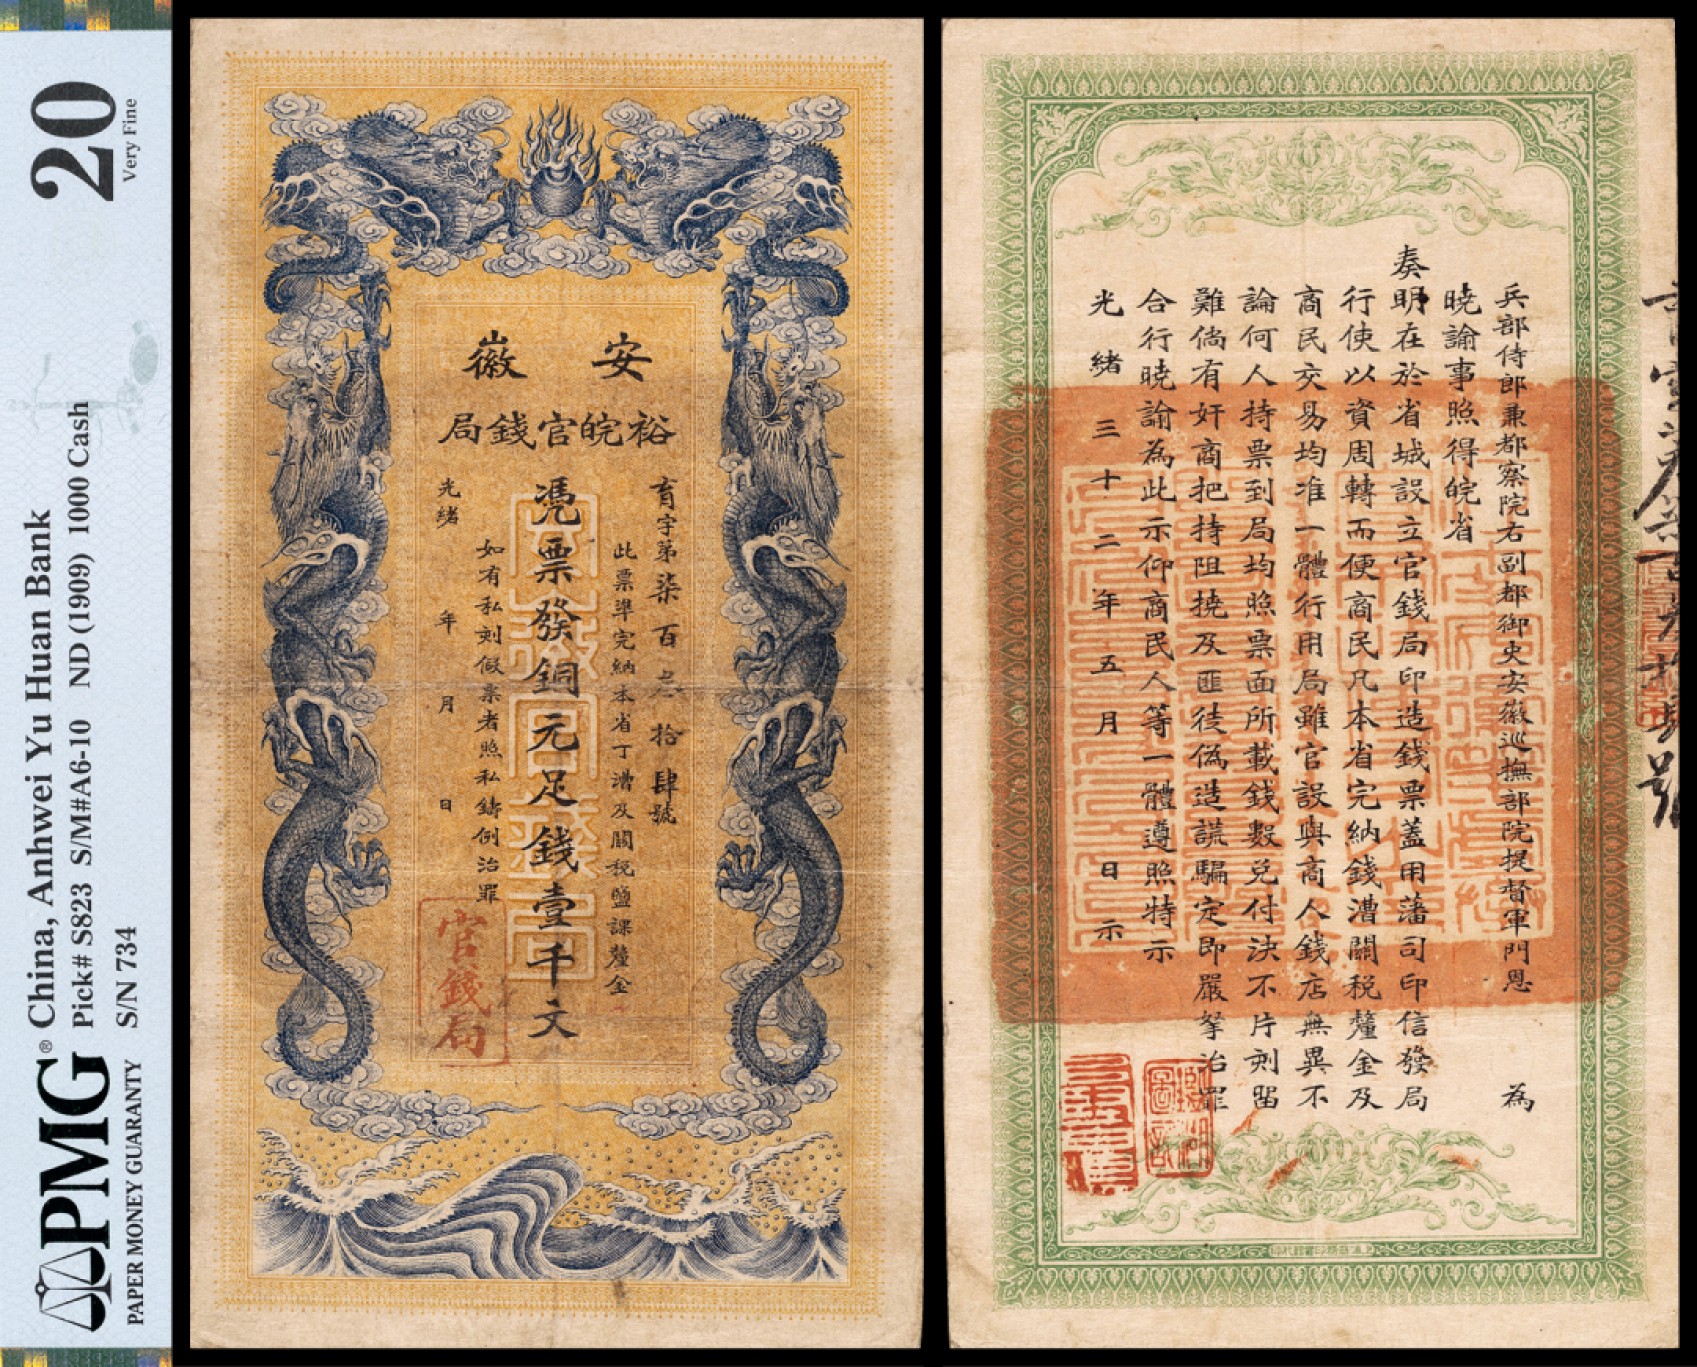 20
Very Fine
China, Anhwei Yu Huan Bank
Pick# S823 S/M#A6-10 ND (1909) 1000 Cash
S/N 734
PMG®
PAPER MONEY GUARANTY
安徽
裕皖官錢局
育字第柒百叁拾肆號
此票準完納本省丁漕及關税鹽課釐金
憑票發銅元足錢壹千文
如有私刻假票者照私鑄例治罪
光緒 年 月 日
官錢局
兵部侍郎兼都察院右副都御史安徽巡撫部院提督軍門恩 為
曉諭事照得皖省
奏明在於省城設立官錢局印造錢票蓋用藩司印信發局
行使以資周轉而便商民凡本省完納錢漕關税釐金及
商民交易均准一體行用局雖官設與商人錢店無異不
論何人持票到局均照票面所載錢數兑付決不片刻留
難倘有奸商把持阻撓及匪徒偽造謊騙定即嚴拏治罪
合行曉諭為此示仰商民人等一體遵照特示
光緒三十二年五月 日示